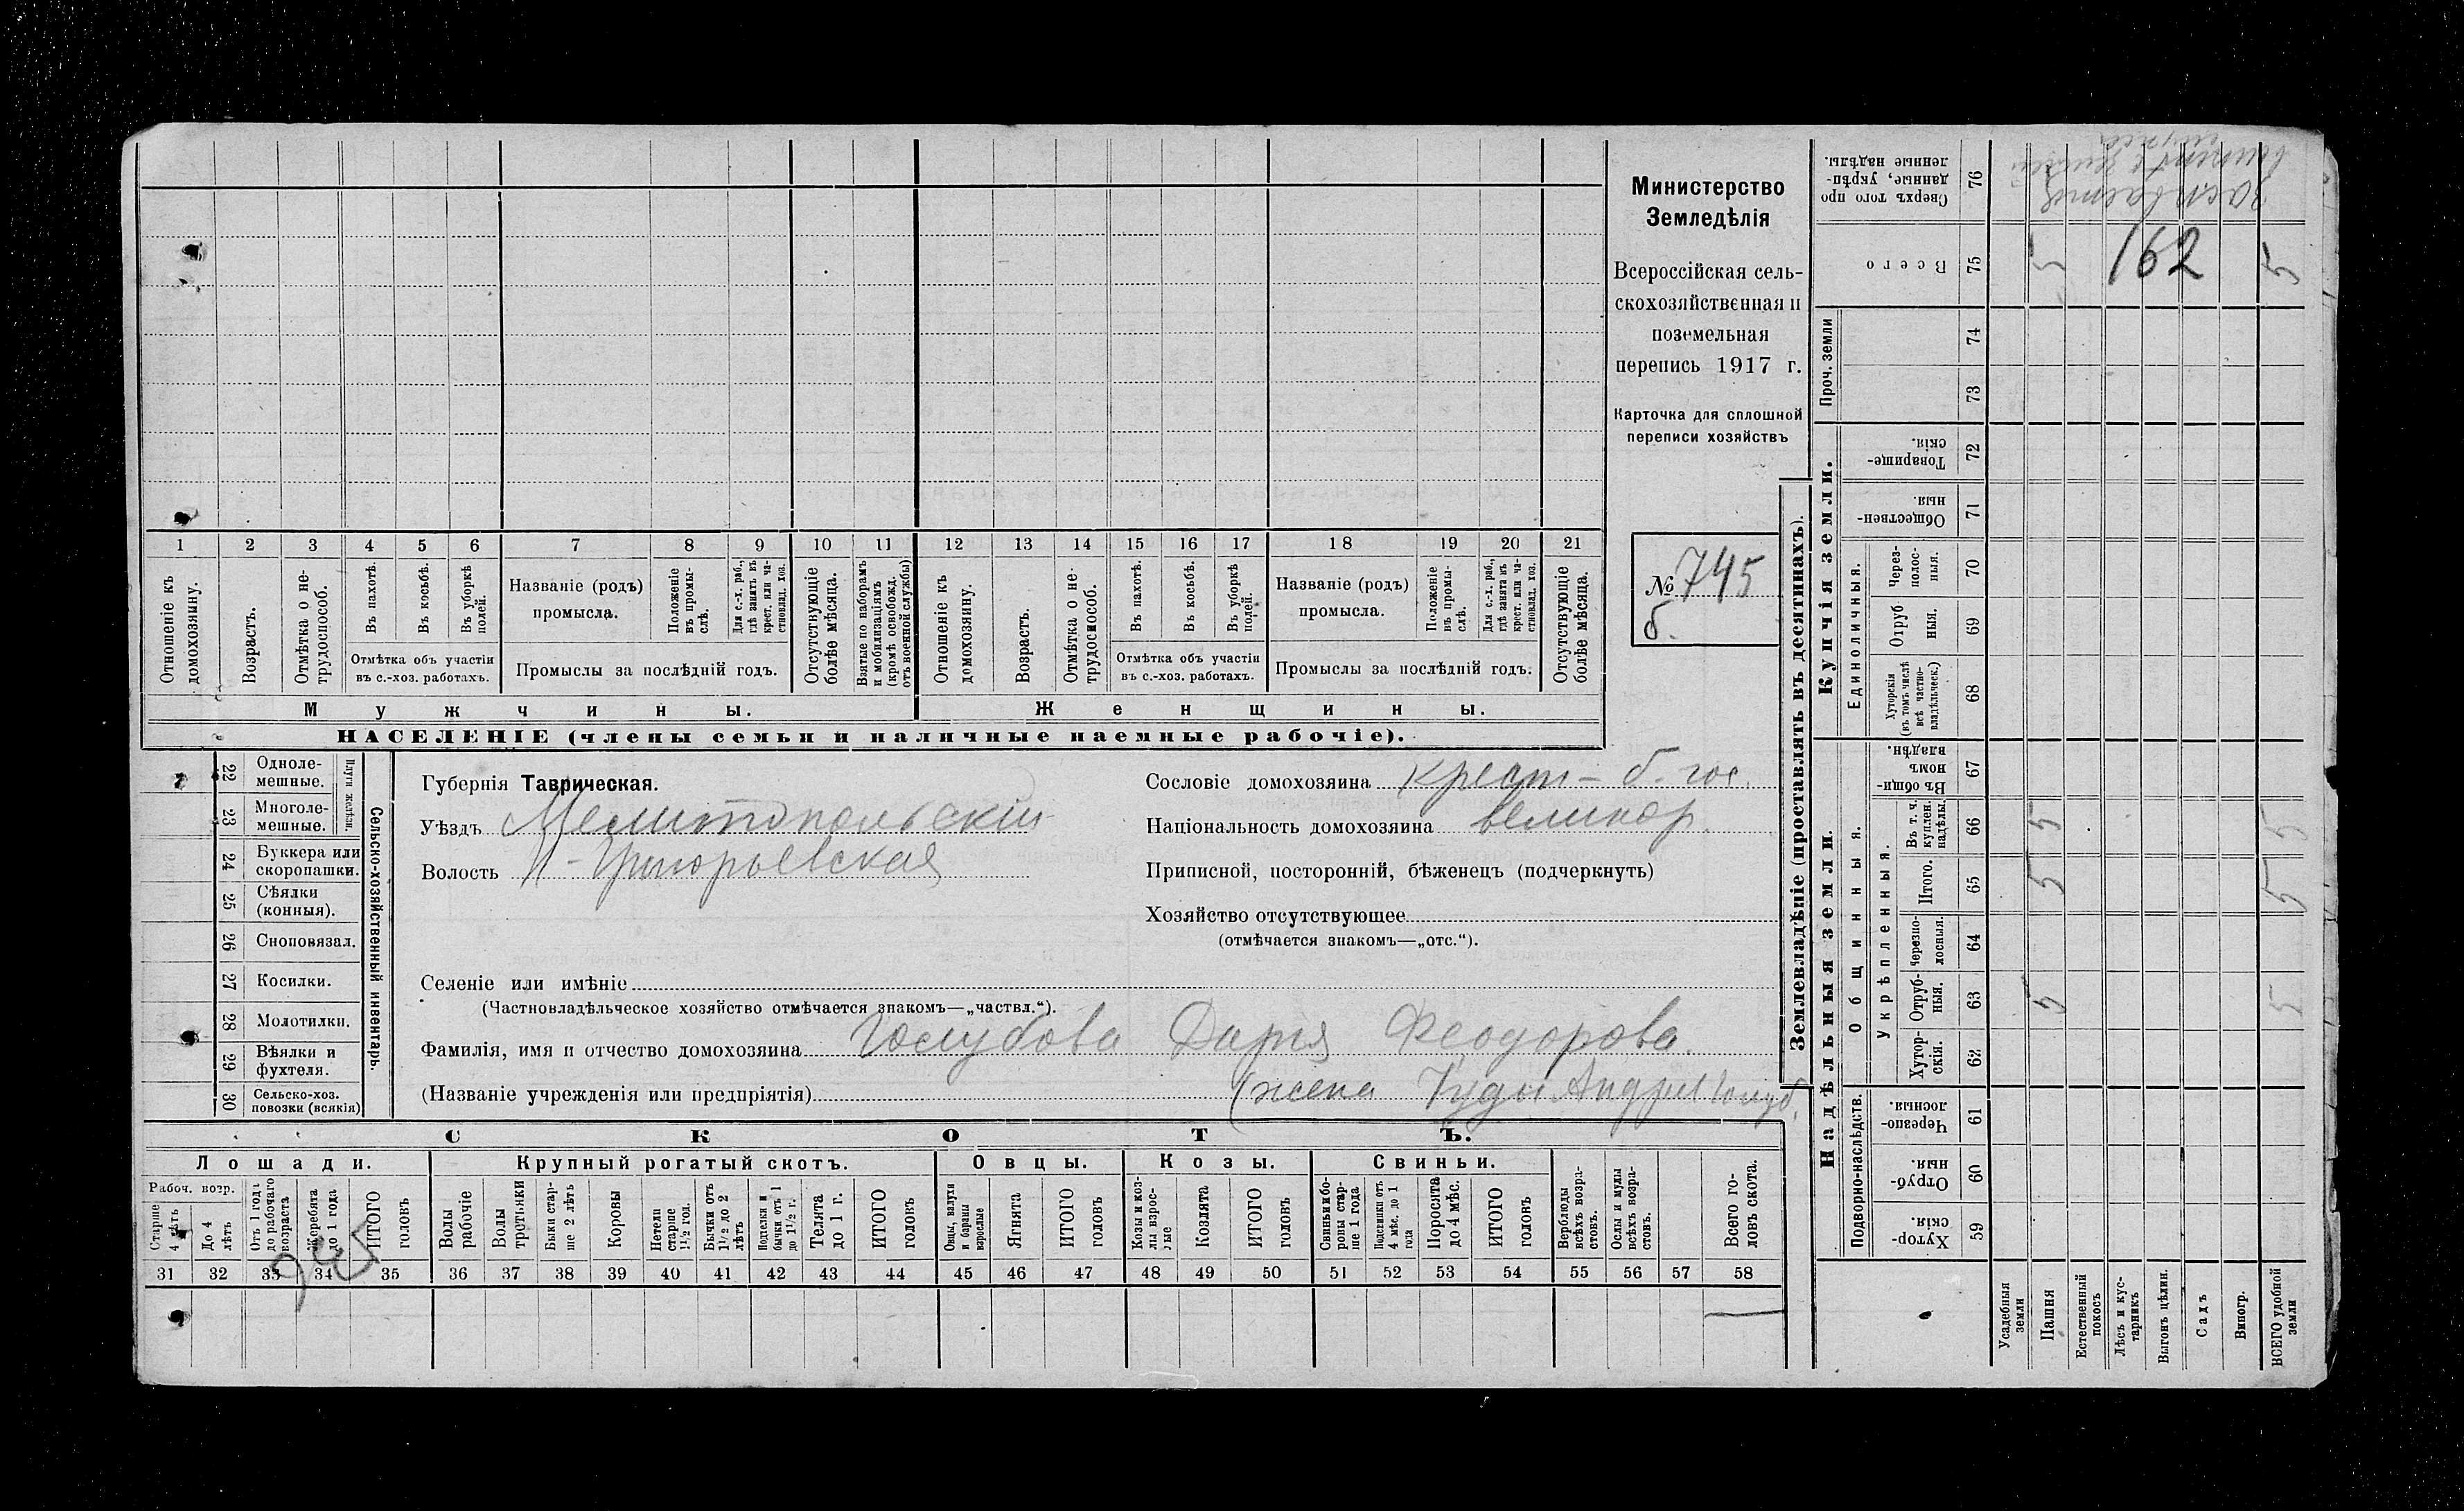 Министерство
Земледѣлія
Всероссійская сель-
скохозяйственная и
поземельная
перепись 1917 г.
Карточка для сплошной
переписи хозяйствъ
№ 745
б.
1 2 3 4 5 6 7 8 9 10 11 12 13 14 15 16 17 18 19 20 21
Отношеніе къ домохозяину.
Возрастъ.
Отмѣтка о не-трудоспособ.
Въ пахотѣ.
Въ косьбѣ.
Въ уборкѣ полей.
Отмѣтка объ участіи
въ с.-хоз. работахъ.
Названіе (родъ)
промысла.
Положеніе въ промы-слѣ.
Для с.-х. раб., гдѣ занятъ въ крест. или ча-стновлад. хоз.
Промыслы за послѣдній годъ.
Отсутствующіе болѣе мѣсяца.
Взятые по наборамъ и мобилизаціямъ (кромѣ освобожд. отъ военной службы)
Отношеніе къ домохозяину.
Возрастъ.
Отмѣтка о не-трудоспособ.
Въ пахотѣ.
Въ косьбѣ.
Въ уборкѣ полей.
Отмѣтка объ участіи
въ с.-хоз. работахъ.
Названіе (родъ)
промысла.
Положеніе въ промы-слѣ.
Для с.-х. раб., гдѣ занята въ крест. или ча-стновлад. хоз.
Промыслы за послѣдній годъ.
Отсутствующіе болѣе мѣсяца.
Мужчины.
Женщины.
НАСЕЛЕНІЕ (члены семьи и наличные наемные рабочіе).
22 Одноле-мешные.
23 Многоле-мешные.
Плуги желѣзн.
24 Буккера или скоропашки.
25 Сѣялки (конныя).
26 Сноповязал.
27 Косилки.
28 Молотилки.
29 Вѣялки и фухтеля.
30 Сельско-хоз. повозки (всякія)
Сельско-хозяйственный инвентарь.
Губернія Таврическая.
Уѣздъ Мелитопольскій
Волость Н-Григорьевская
Сословіе домохозяина крест- б. гос.
Національность домохозяина великор.
Приписной, посторонній, бѣженецъ (подчеркнуть)
Хозяйство отсутствующее
(отмѣчается знакомъ—„отс.“).
Селеніе или имѣніе
(Частновладѣльческое хозяйство отмѣчается знакомъ—„частвл.“).
Фамилія, имя и отчество домохозяина Голубова Дарья Феодорова.
(Названіе учрежденія или предпріятія) (жена Андрея Голуб.
СКОТЪ.
Лошади.
Крупный рогатый скотъ.
Овцы.
Козы.
Свиньи.
Рабоч. возр.
Старше 4 лѣтъ
До 4 лѣтъ
Отъ 1 года до рабочаго возраста
Жеребята до 1 года
ИТОГО головъ
Волы рабочіе
Волы третьяки
Быки стар-ше 2 лѣтъ
Коровы
Нетели старше 1½ год.
Бычки отъ 1½ до 2 лѣтъ
Подтелки и бычки отъ 1 до 1½ г.
Телята до 1 г.
ИТОГО головъ
Овцы, валухи и бараны взрослые
Ягнята
ИТОГО головъ
Козы и коз-лы взрос-лые
Козлята
ИТОГО головъ
Свиньи и бо-роны стар-ше 1 года
Подсвинки отъ 4 мѣс. до 1 года
Поросята до 4 мѣс.
ИТОГО головъ
Верблюды всѣхъ возра-стовъ.
Ослы и мулы всѣхъ возра-стовъ.
Всего го-ловъ скота.
31 32 33 34 35 36 37 38 39 40 41 42 43 44 45 46 47 48 49 50 51 52 53 54 55 56 57 58
Землевладѣніе (проставлять въ десятинахъ).
Сверхъ того про-данные, укрѣп-ленные надѣлы. 76
Всего 75 5 162 5
Проч. земли
74
73
Купчія земли.
Товарище-скія. 72
Обществен-ныя. 71
Единоличныя.
Через-полос-ныя. 70
Отруб-ныя. 69
Хуторскія (въ томъ числѣ всѣ частно-владѣльческ.) 68
Надѣльныя земли.
Общинныя.
Въ общи-номъ владѣн. 67
Укрѣпленныя.
Въ т. ч. куплен. надѣлы. 66 5 5
Итого. 65 5 5
Черезпо-лосныя. 64
Отруб-ныя. 63 5 5
Хутор-скія. 62
Подворно-наслѣдств.
Черезпо-лосныя. 61
Отруб-ныя. 60
Хутор-скія. 59
Усадебныя земли
Пашня
Естественный покосъ
Лѣсъ и кус-тарникъ
Выгонъ цѣлин.
Садъ
Виногр.
ВСЕГО удобной земли